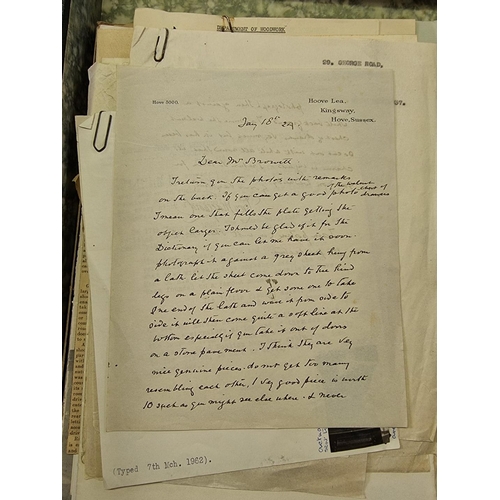 DEPARTMENT OF WOODWORK
29, GEORGE ROAD,
Hove 3506.
Hoove Lea.
Kingsway,
Hove, Sussex.
Jany 18th 29
Dear Mr Browett
I return you the photos with remarks
on the back. If you can get a good photo of the walnut chest of drawers
I mean one that fills the plate getting the
object larger. I should be glad of it for the
Dictionary if you can let me have it soon.
photograph it against a grey sheet hung from
a lath let the sheet come down to the hind
legs on a plain floor & get some one to take
one end of the lath and wave it from side to
side it will then come quite a soft line at the
bottom especially if you take it out of doors
on a stone pavement. I think they are very
nice genuine pieces. do not get too many
resembling each other, 1 very good piece is worth
10 such as you might see else where. & never
(Typed 7th Mch. 1962).